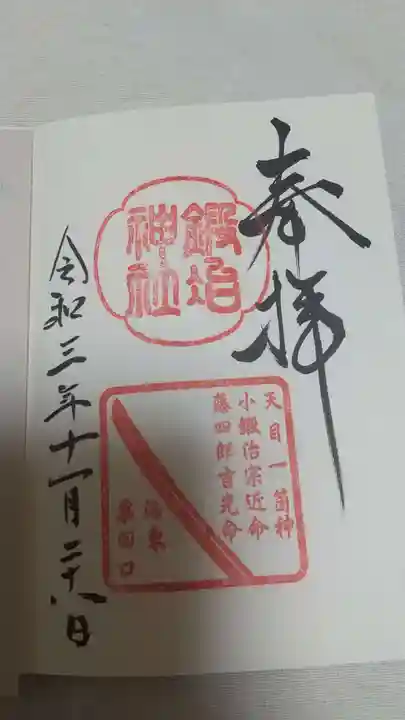 奉拝
鍛冶
神社
天目一箇神
小鍛治宗近命
藤四郎吉光命
洛東
粟田口
令和三年十一月二十八日